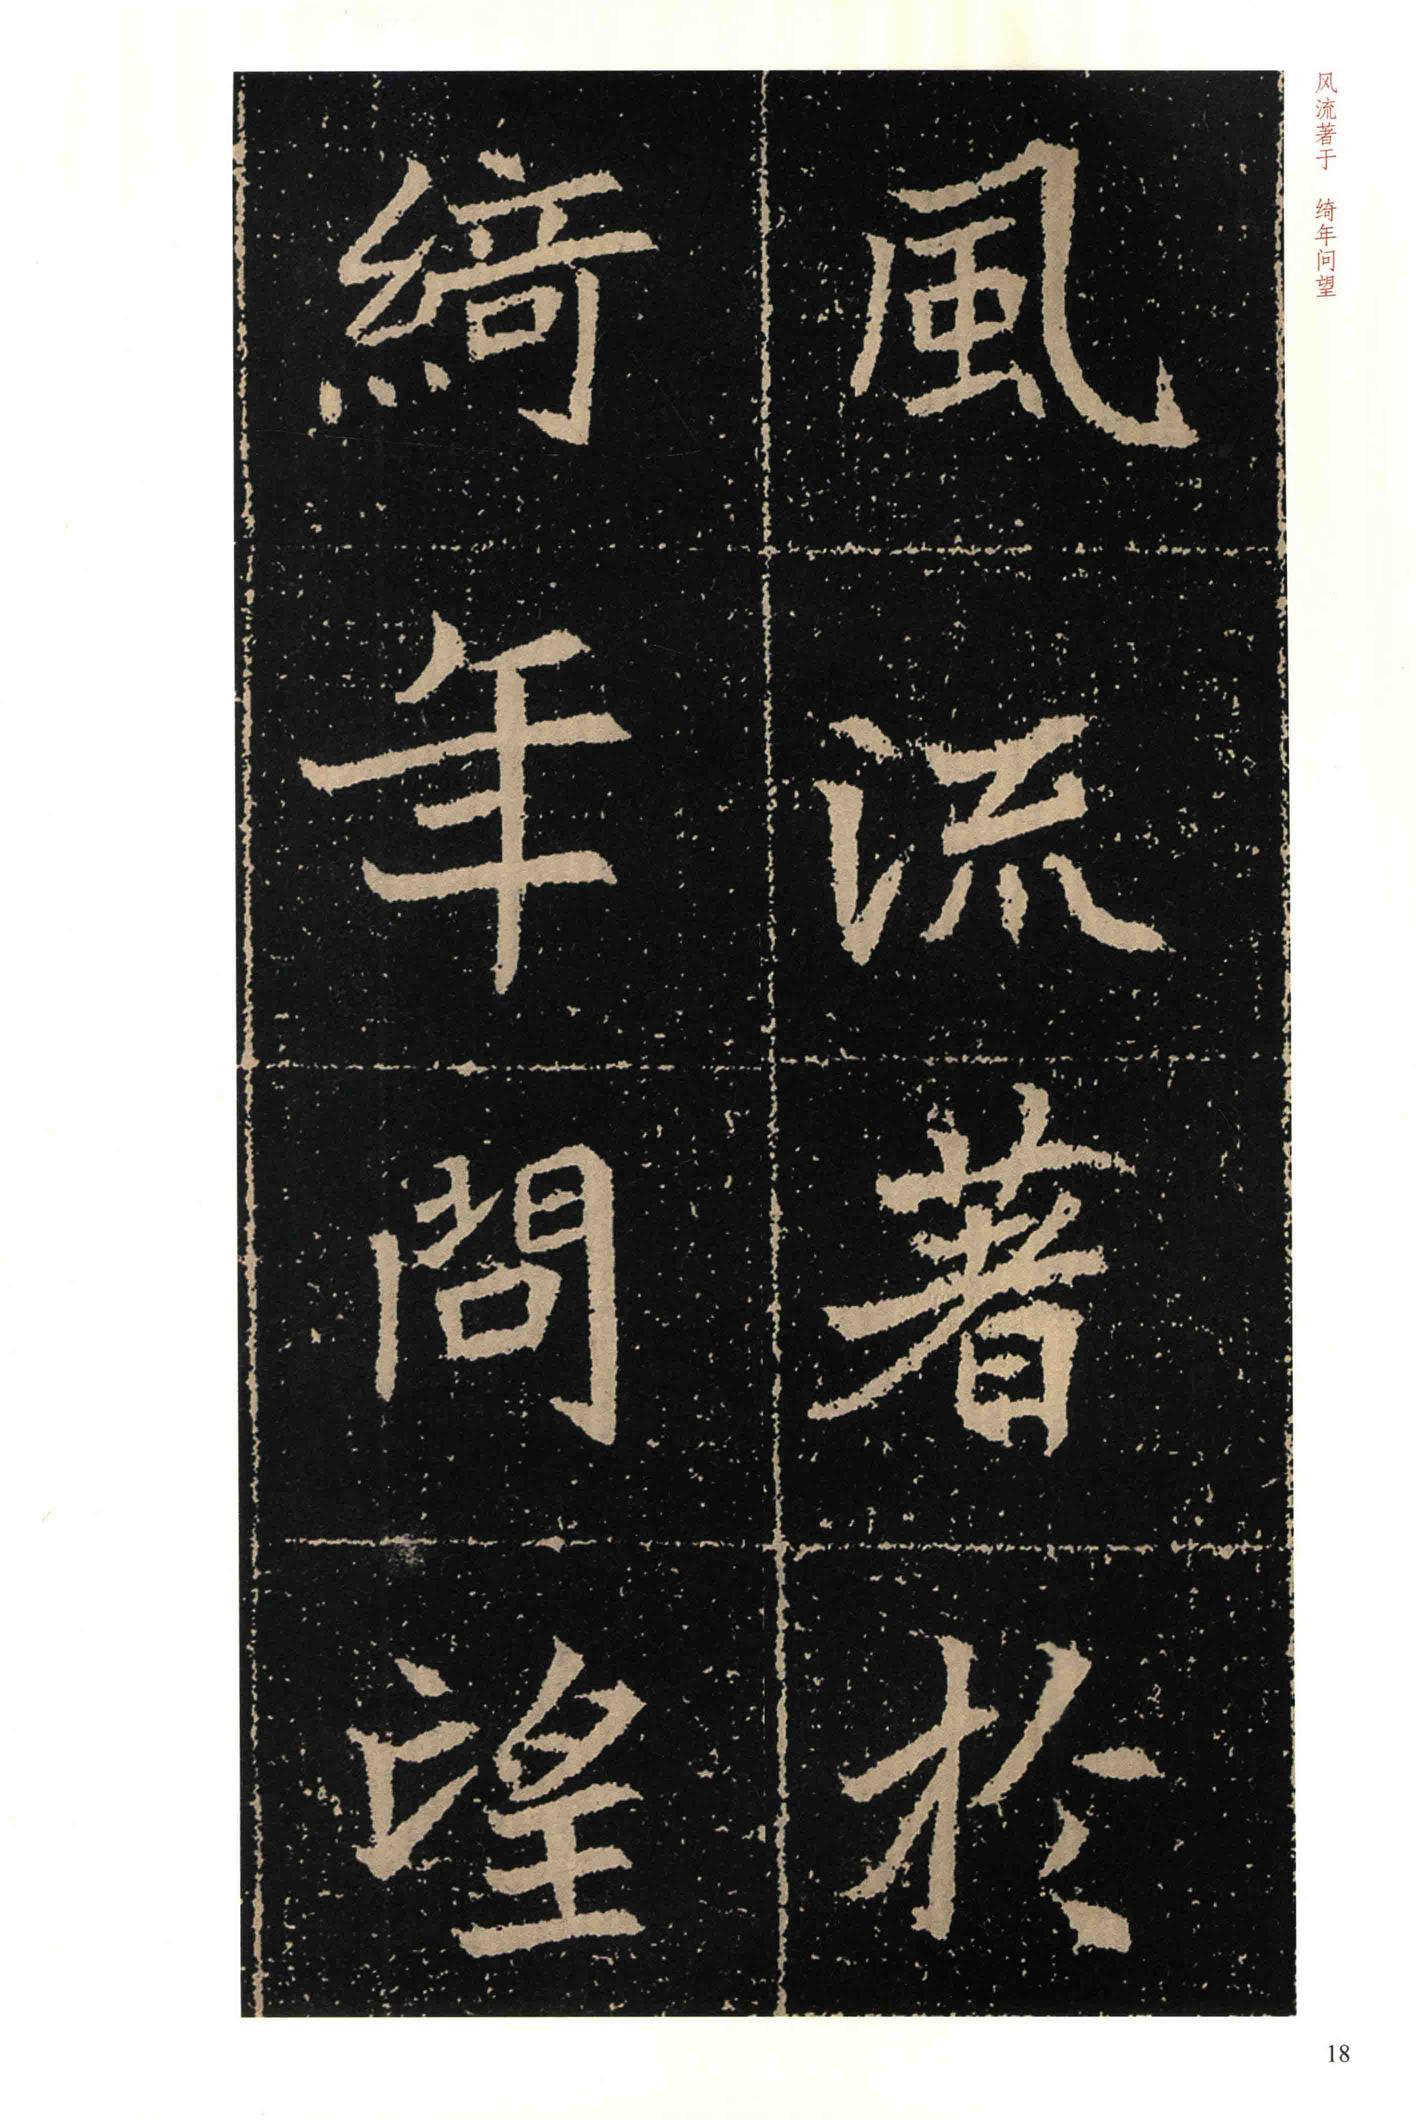 风流著于 绮年问望
風流著於
綺年問望
18